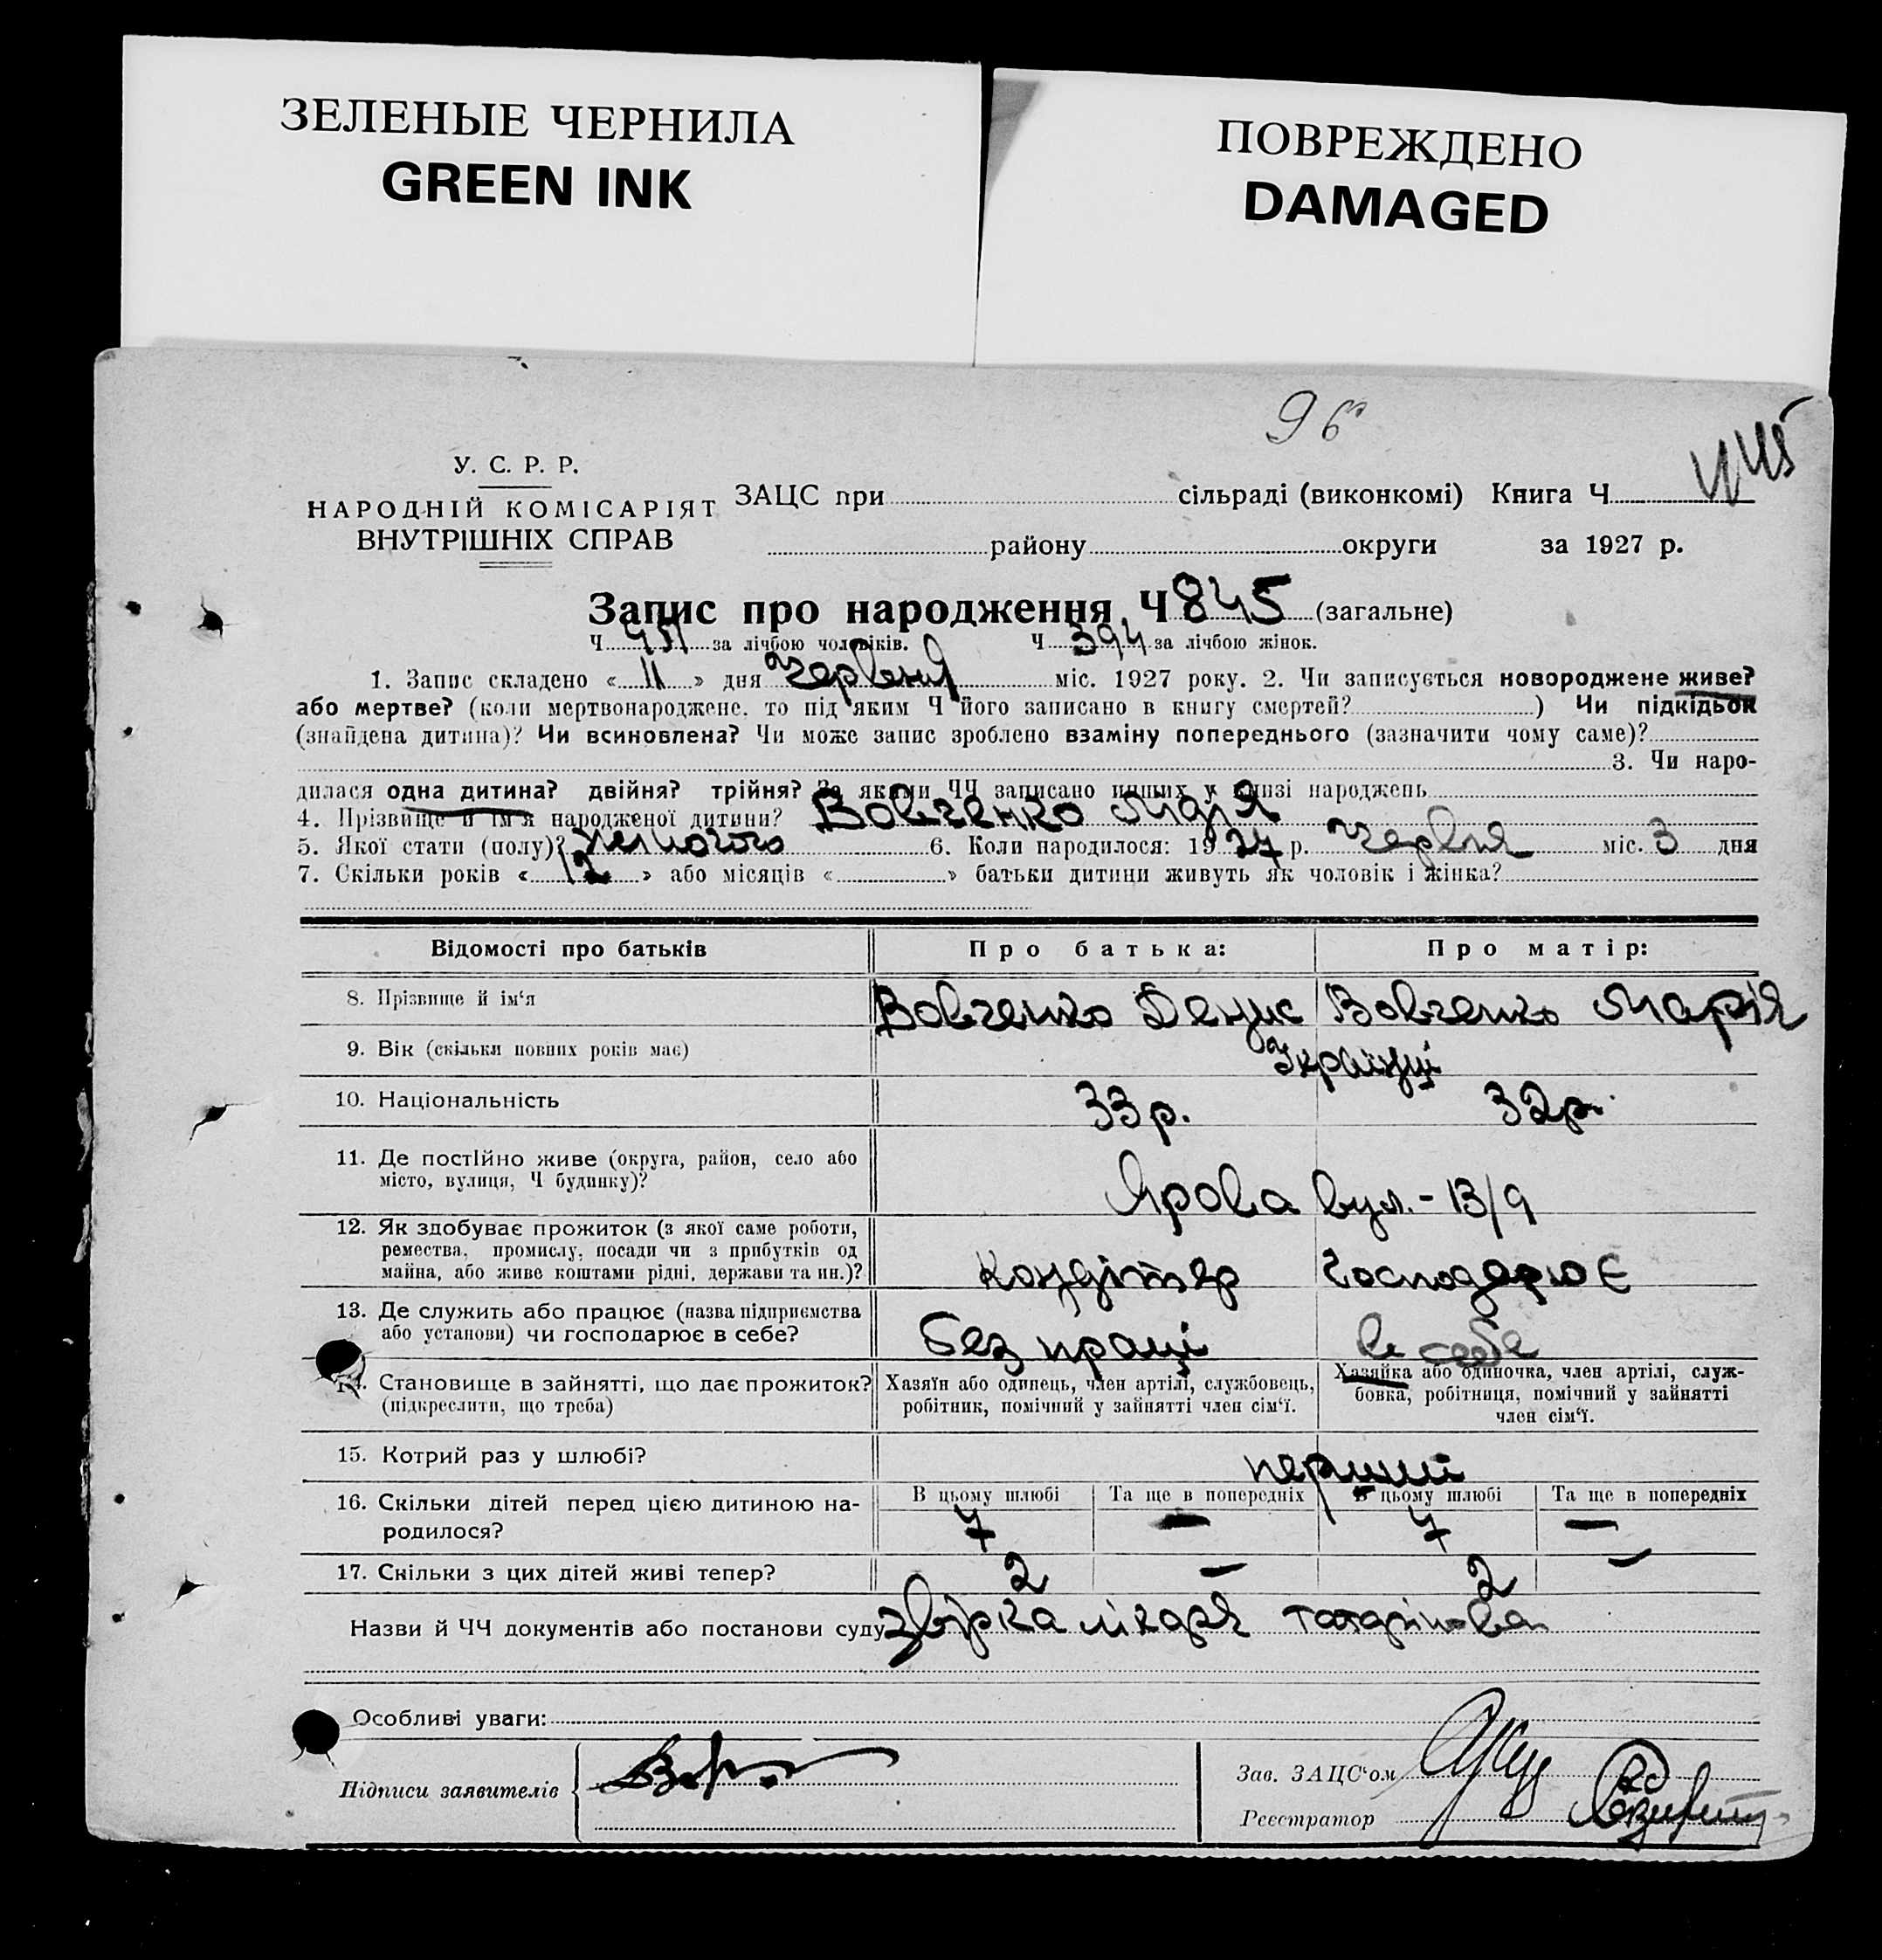 ЗЕЛЕНЫЕ ЧЕРНИЛА
GREEN INK
ПОВРЕЖДЕНО
DAMAGED
У. С. Р. Р.
НАРОДНІЙ КОМІСАРІЯТ
ВНУТРІШНІХ СПРАВ
ЗАЦС при сільраді (виконкомі) Книга Ч
району округи за 1927 р.
Запис про народження Ч 845 (загальне)
Ч 451 за лічбою чоловіків. Ч 394 за лічбою жінок.
1. Запис складено « 11 » дня Червня міс. 1927 року. 2. Чи записується новороджене живе?
або мертве? (коли мертвонароджене, то під яким Ч його записано в книгу смертей? ) Чи підкідьок
(знайдена дитина)? Чи всиновлена? Чи може запис зроблено взаміну попереднього (зазначити чому саме)?
3. Чи наро-
дилася одна дитина? двійня? трійня? За якими ЧЧ записано инших у книзі народжень
4. Прізвище й ім'я народженої дитини? Вовченко Марія
5. Якої стати (полу)? жіночого 6. Коли народилося: 1927 р. Червня міс. 3 дня
7. Скільки років « 12 » або місяців « » батьки дитини живуть як чоловік і жінка?
Відомості про батьків Про батька: Про матір:
8. Прізвище й ім'я Вовченко Денис Вовченко Марія
9. Вік (скільки повних років має) Українці
10. Національність 33 р. 32 р.
11. Де постійно живе (округа, район, село або
місто, вулиця, Ч будинку)? Ярова вул. - 13/9
12. Як здобуває прожиток (з якої саме роботи,
ремества, промислу, посади чи з прибутків од
майна, або живе коштами рідні, держави та ин.)? Кондітер Господарює
13. Де служить або працює (назва підприємства
або установи) чи господарює в себе? без праці в себе
14. Становище в зайнятті, що дає прожиток?
(підкреслити, що треба)
Хазяїн або одинець, член артілі, службовець,
робітник, помічний у зайнятті член сім'ї.
Хазяйка або одиночка, член артілі, служ-
бовка, робітниця, помічний у зайнятті
член сім'ї.
15. Котрий раз у шлюбі? перший
16. Скільки дітей перед цією дитиною на-
родилося?
В цьому шлюбі Та ще в попередніх В цьому шлюбі Та ще в попередніх
7 — 7 —
17. Скільки з цих дітей живі тепер? 2 — 2 —
Назви й ЧЧ документів або постанови суду звірка лікаря Татарінова
Особливі уваги:
Підписи заявителів
Зав. ЗАЦС'ом
Реєстратор